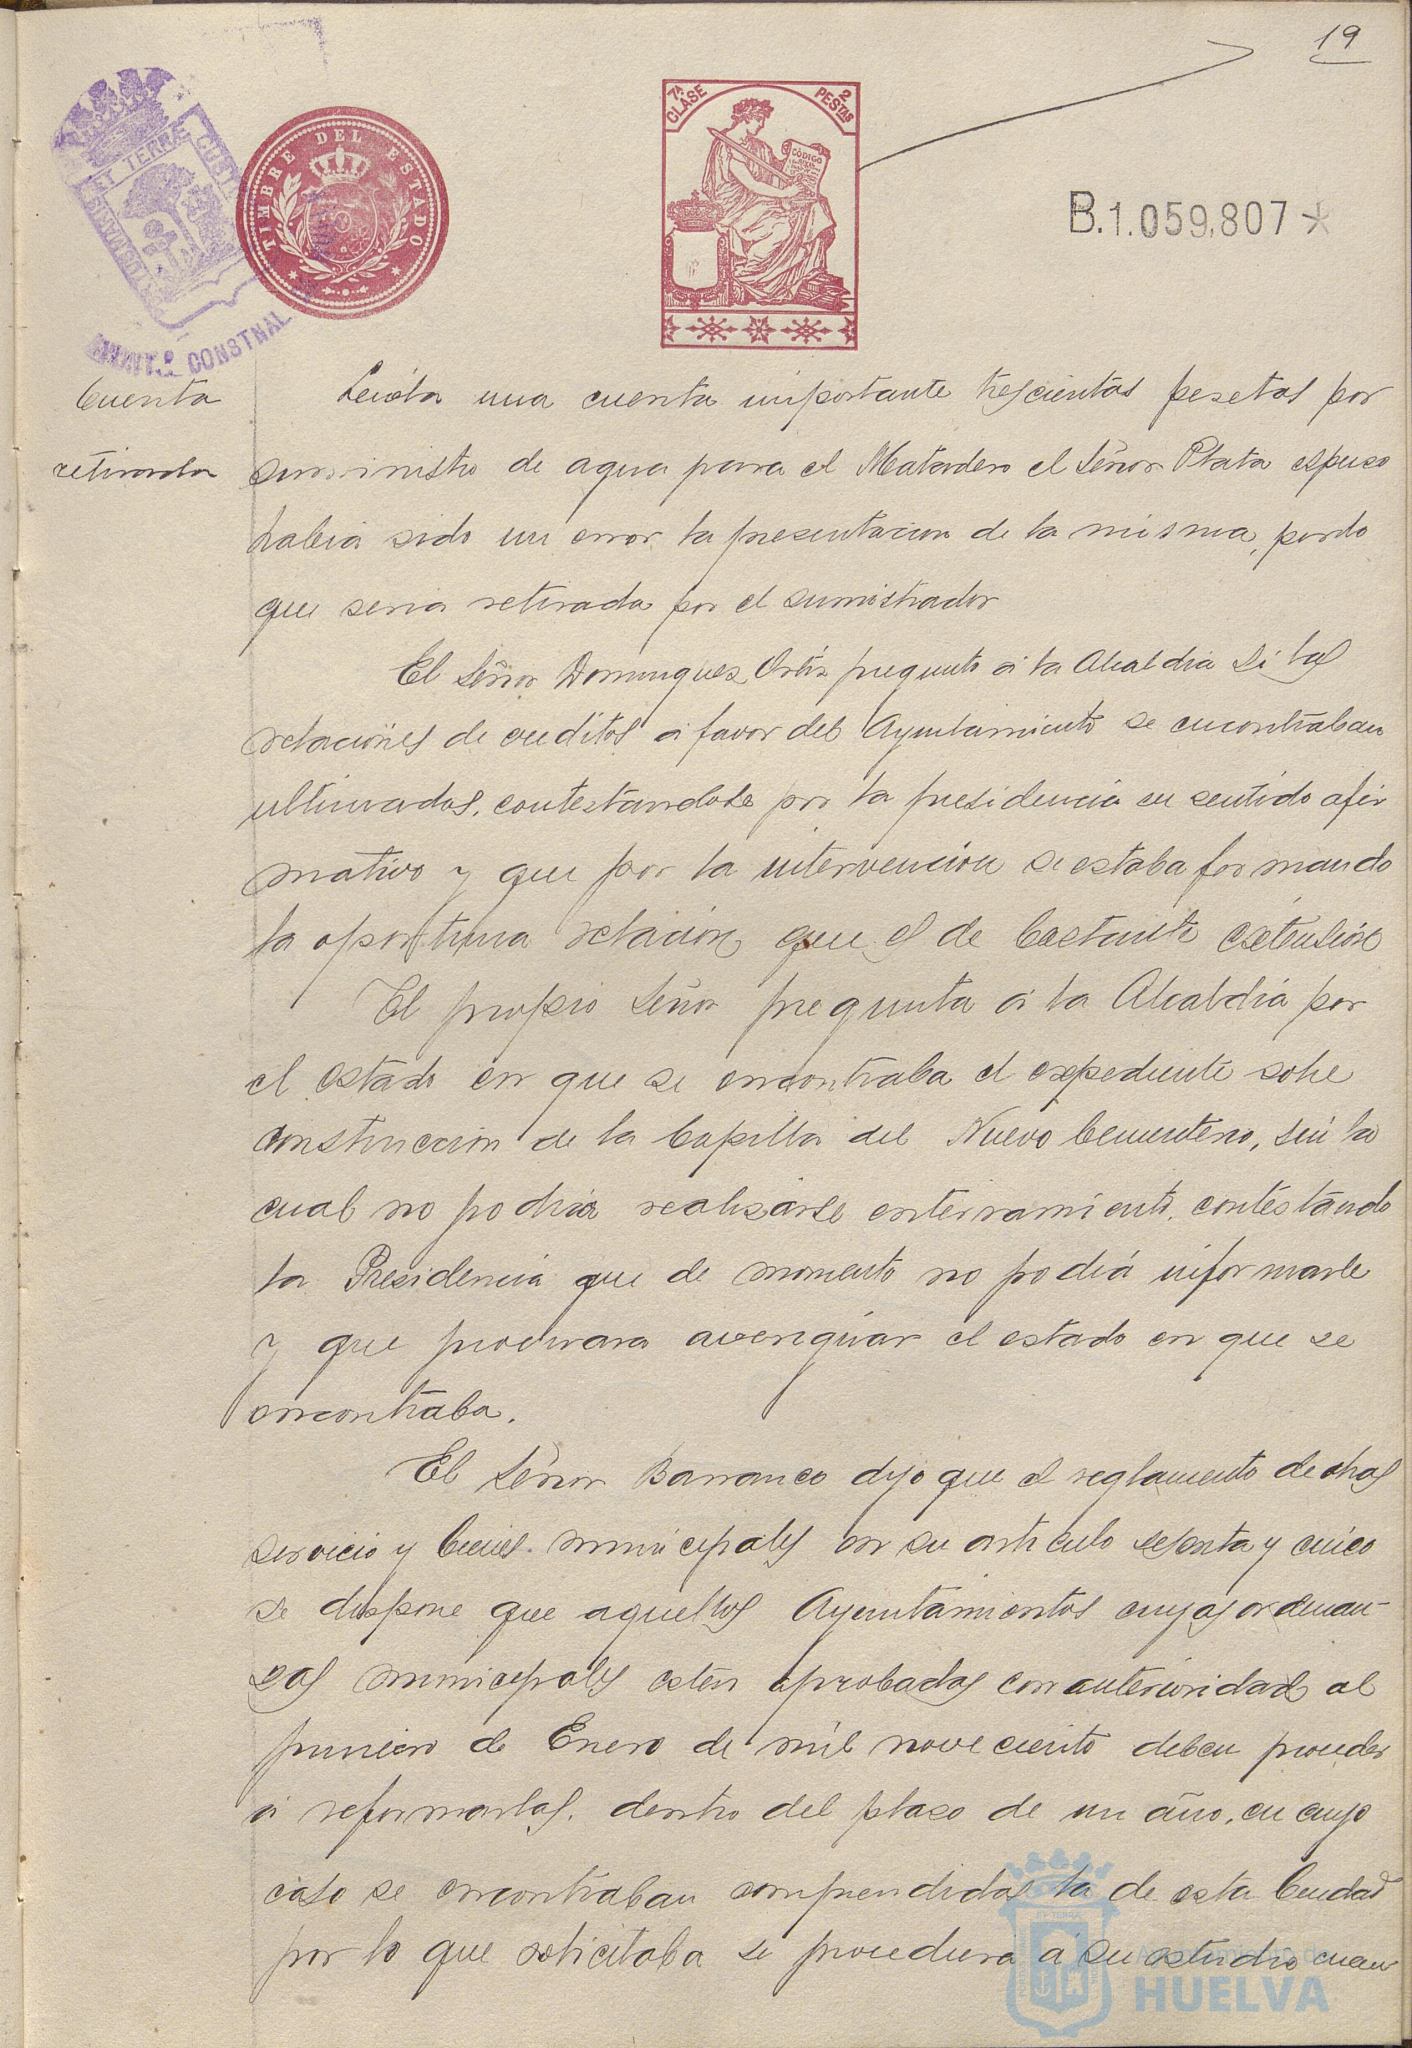 19
PORTUS MARIS ET TERRAE CUSTODIA
AYUNTº CONSTNAL
TIMBRE DEL ESTADO
7ª CLASE
2 PESTAS
CÓDIGO
B.1.059,807*
Cuenta
retirada
Leida una cuenta importante trescientas pesetas por
suministro de agua para el Matadero el Señor Plata espuso
habia sido un error la presentacion de la misma, por lo
que seria retirada por el sumistrador
El Señor Dominguez Ortiz pregunto á la Alcaldia si las
relaciones de creditos á favor del Ayuntamiento se encontraban
ultimadas, contestandose por la presidencia en sentido afir
mativo y que por la intervencion se estaba formando
la oportuna relacion que es de bastante estension
El propio Señor pregunta á la Alcaldia por
el estado en que se encontraba el expediente sobre
construccion de la Capilla del Nuevo Cementerio, sin la
cual no podria realizarse enterramiento, contestando
la Presidencia que de momento no podia informarle
y que procurara averiguar el estado en que se
encontraba.
El Señor Barranco dijo que el reglamento de obras
servicio y bienes municipales en su articulo sesenta y cinco
se dispone que aquellos Ayuntamientos cuyas ordenan-
zas municipales esten aprobadas con anterioridad al
primero de Enero de mil novecientos deben proceder
á reformarlas, dentro del plazo de un año, en cuyo
caso se encontraban comprendidas la de esta Ciudad
por lo que solicitaba se procediera a su estudio cuan
Ayuntamiento de
HUELVA